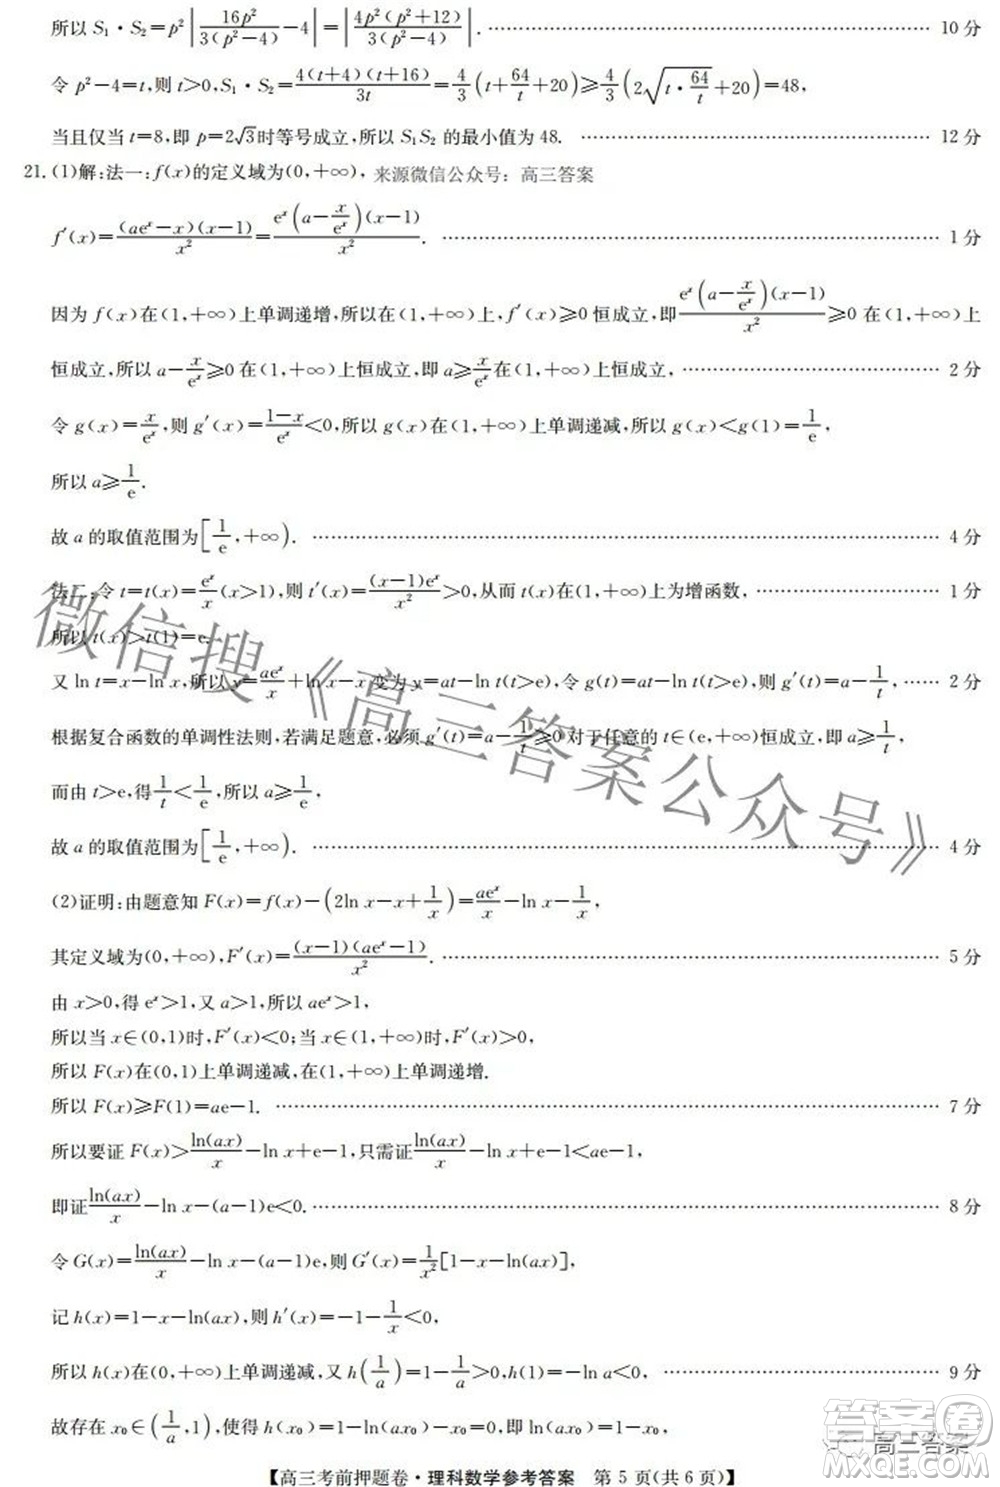 所以 S₁·S₂=p²|16p²/3(p²-4)-4|=|4p²(p²+12)/3(p²-4)|. 10 分
令 p²-4=t,则 t>0,S₁·S₂=4(t+4)(t+16)/3t=4/3(t+64/t+20)≥4/3(2√(t·64/t)+20)=48,
当且仅当 t=8,即 p=2√3时等号成立,所以 S₁S₂ 的最小值为 48. 12 分
21. (1)解:法一:f(x)的定义域为(0,+∞), 来源微信公众号：高三答案
f′(x)=(aeˣ-x)(x-1)/x²=eˣ(a-x/eˣ)(x-1)/x². 1 分
因为 f(x)在(1,+∞)上单调递增,所以在(1,+∞)上,f′(x)≥0 恒成立,即eˣ(a-x/eˣ)(x-1)/x²≥0 在(1,+∞)上
恒成立,所以 a-x/eˣ≥0 在(1,+∞)上恒成立,即 a≥x/eˣ在(1,+∞)上恒成立, 2 分
令 g(x)=x/eˣ,则 g′(x)=1-x/eˣ<0,所以 g(x)在(1,+∞)上单调递减,所以 g(x)<g(1)=1/e,
所以 a≥1/e.
故 a 的取值范围为[1/e,+∞). 4 分
法二:令 t=t(x)=eˣ/x(x>1),则 t′(x)=(x-1)eˣ/x²>0,从而 t(x)在(1,+∞)上为增函数, 1 分
所以 t(x)>t(1)=e.
又 ln t=x-ln x,所以 y=aeˣ/x+ln x-x 变为 y=at-ln t(t>e),令 g(t)=at-ln t(t>e),则 g′(t)=a-1/t, 2 分
根据复合函数的单调性法则,若满足题意,必须 g′(t)=a-1/t≥0 对于任意的 t∈(e,+∞)恒成立,即 a≥1/t,
而由 t>e,得1/t<1/e,所以 a≥1/e,
故 a 的取值范围为[1/e,+∞). 4 分
(2)证明:由题意知 F(x)=f(x)-(2ln x-x+1/x)=aeˣ/x-ln x-1/x,
其定义域为(0,+∞),F′(x)=(x-1)(aeˣ-1)/x². 5 分
由 x>0,得 eˣ>1,又 a>1,所以 aeˣ>1,
所以当 x∈(0,1)时,F′(x)<0;当 x∈(1,+∞)时,F′(x)>0,
所以 F(x)在(0,1)上单调递减,在(1,+∞)上单调递增.
所以 F(x)≥F(1)=ae-1. 7 分
所以要证 F(x)>ln(ax)/x-ln x+e-1,只需证ln(ax)/x-ln x+e-1<ae-1,
即证ln(ax)/x-ln x-(a-1)e<0. 8 分
令 G(x)=ln(ax)/x-ln x-(a-1)e,则 G′(x)=1/x²[1-x-ln(ax)],
记 h(x)=1-x-ln(ax),则 h′(x)=-1-1/x<0,
所以 h(x)在(0,+∞)上单调递减,又 h(1/a)=1-1/a>0,h(1)=-ln a<0, 9 分
故存在 x₀∈(1/a,1),使得 h(x₀)=1-ln(ax₀)-x₀=0,即 ln(ax₀)=1-x₀,
【高三考前押题卷·理科数学参考答案 第 5 页(共 6 页)】
微信搜《高三答案公众号》
答案圈
高三答案